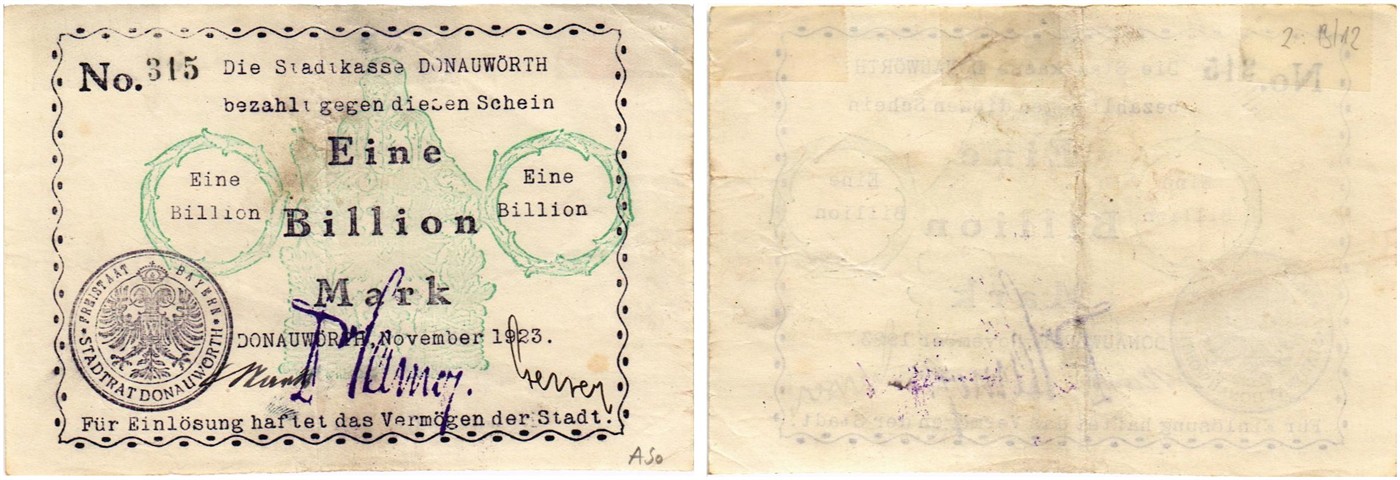 No. 315
Die Stadtkasse DONAUWÖRTH
bezahlt gegen diesen Schein
Eine
Billion
Mark
Eine
Billion
Eine
Billion
FREISTAAT BAYERN
STADTRAT DONAUWÖRTH
DONAUWÖRTH, November 1923.
Für Einlösung haftet das Vermögen der Stadt.